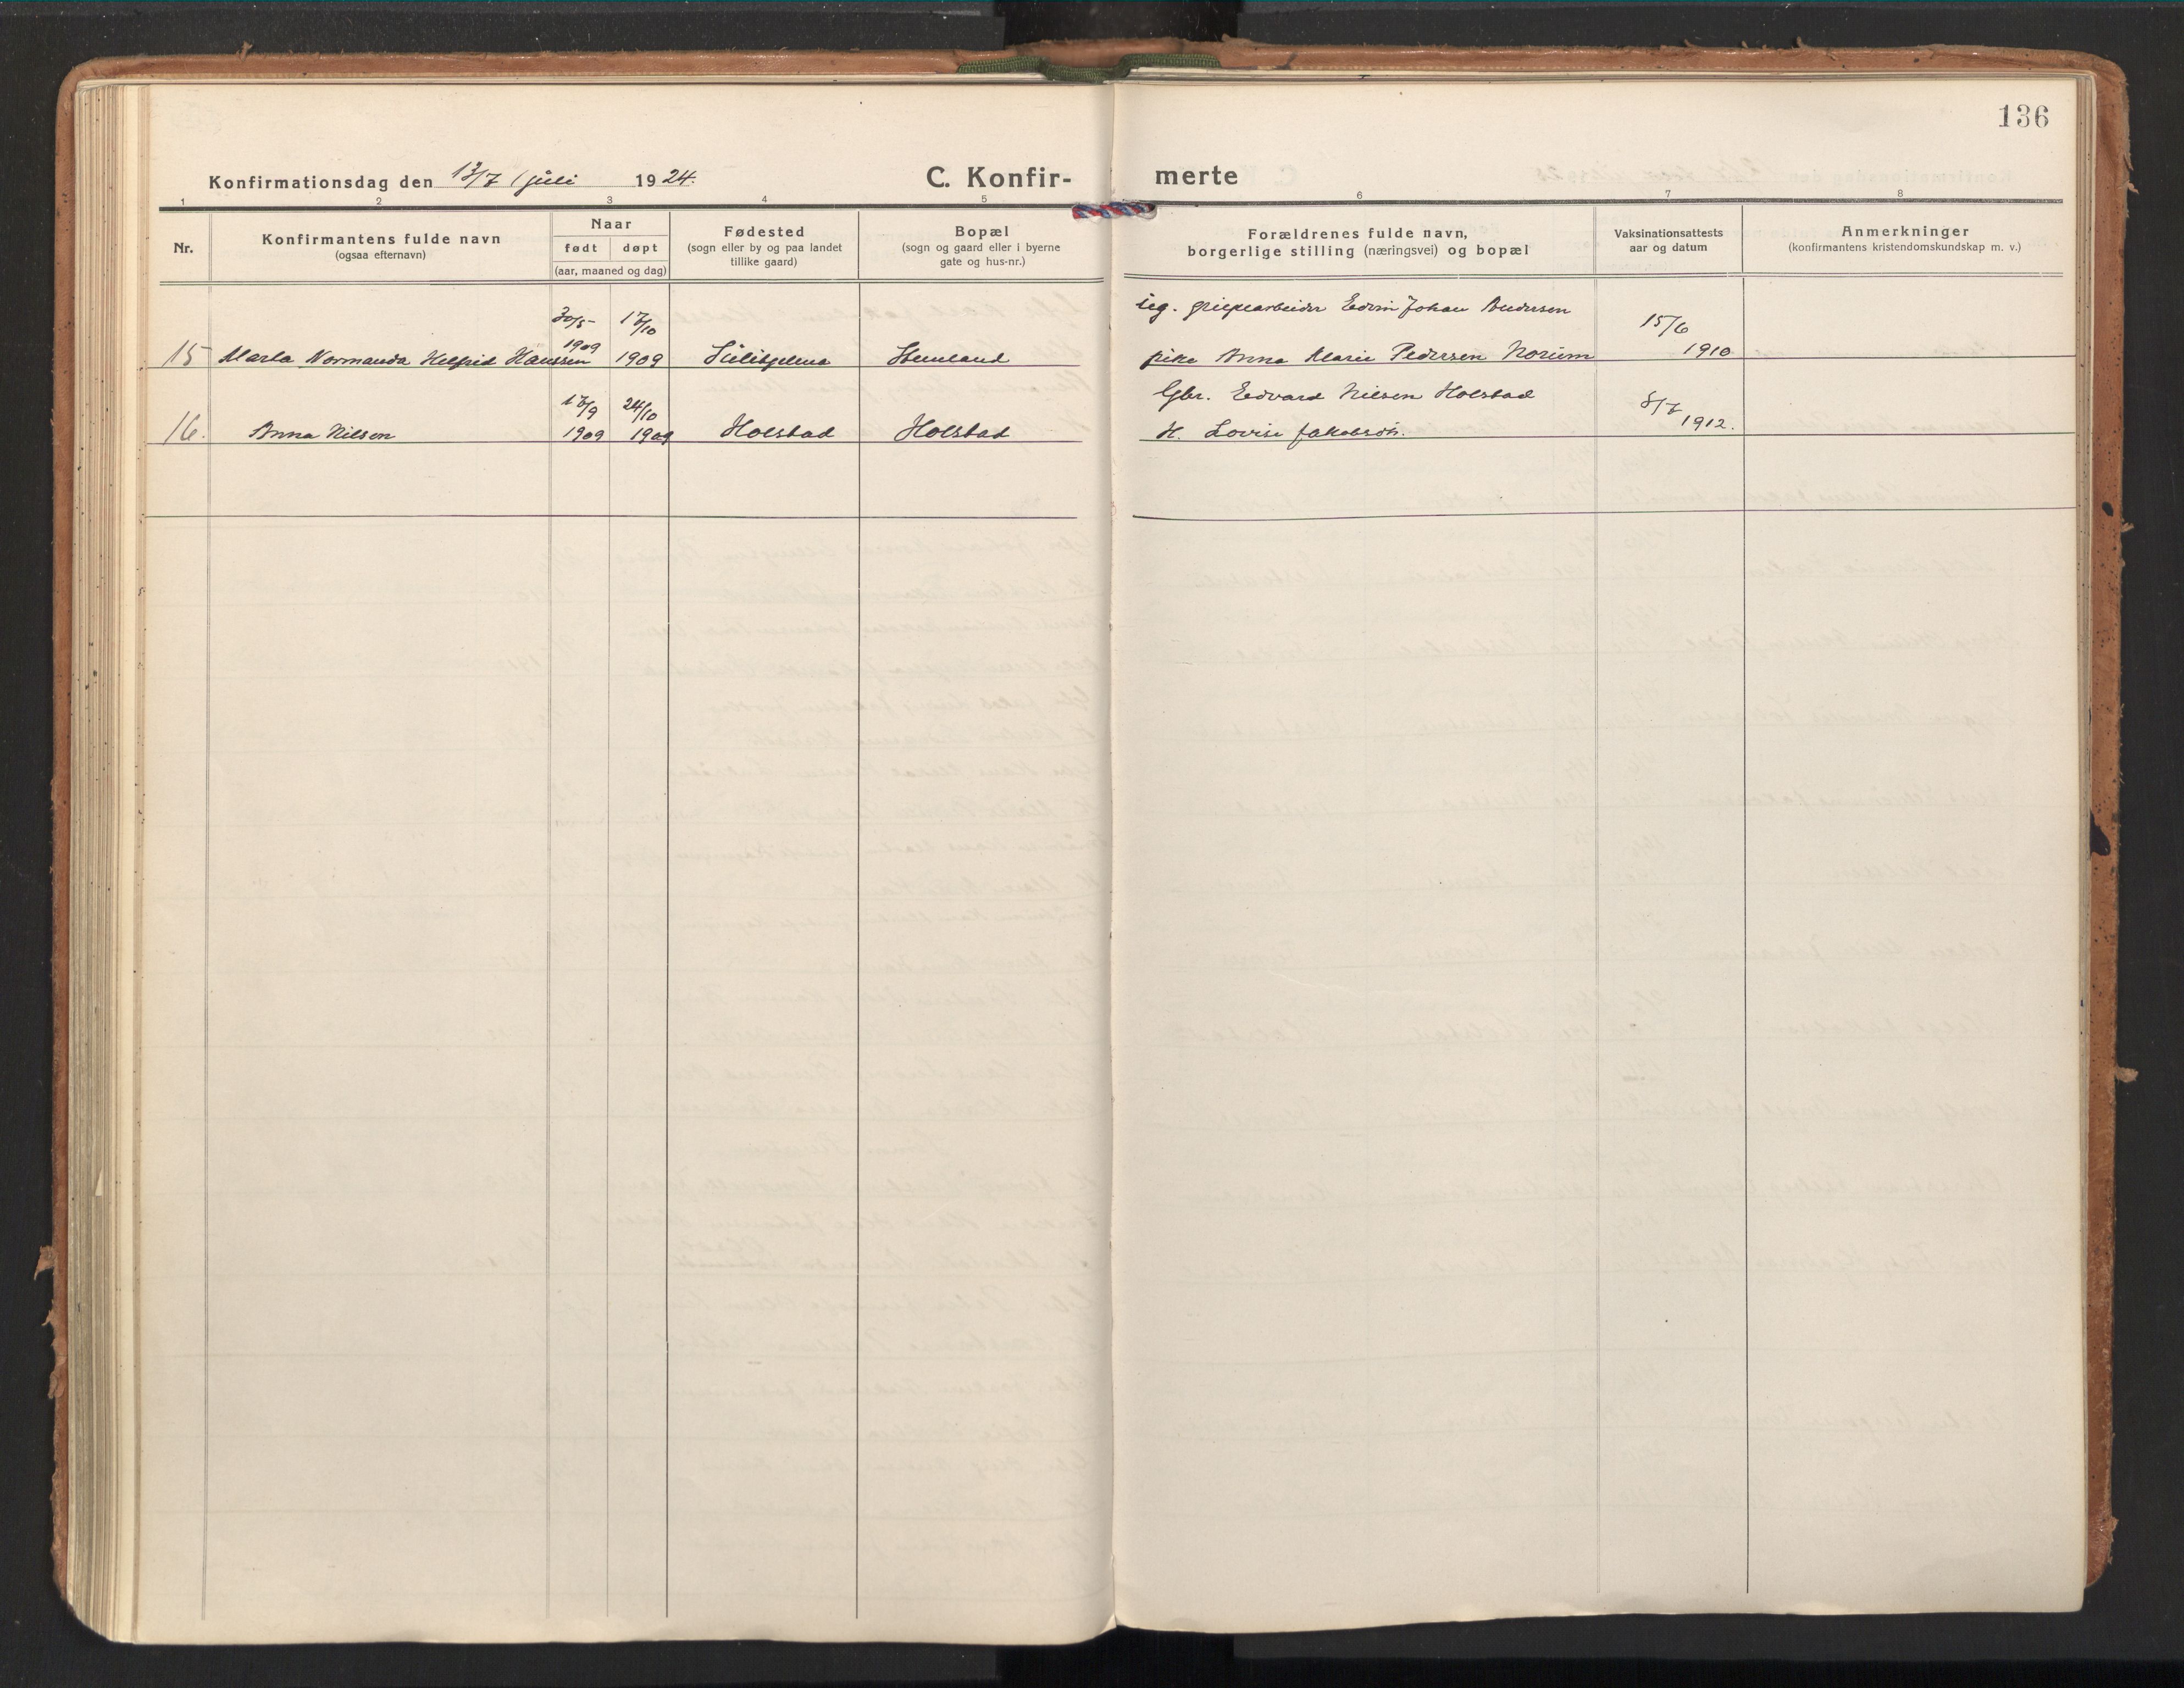 136
Konfirmationsdag den 13/7 juli 1924.
C. Konfir-
merte
1 2 3 4 5 6 7 8
Nr.
Konfirmantens fulde navn
(ogsaa efternavn)
Naar
født døpt
(aar, maaned og dag)
Fødested
(sogn eller by og paa landet
tillike gaard)
Bopæl
(sogn og gaard eller i byerne
gate og hus-nr.)
Forældrenes fulde navn,
borgerlige stilling (næringsvei) og bopæl
Vaksinationsattests
aar og datum
Anmerkninger
(konfirmantens kristendomskundskap m. v.)
30/5- 17/10 Edvin Johan Andersen 15/6
1909
15 Marla Normanda Helfrid Hanssen 1909 Sulitjelma pike Anna Marie Pedersen Norum 1910
17/9 24/10 Gbr. Edvard Nilsen Holstad 8/7
16. Anna Nilsen 1909 1909 Holstad Holstad H. Lovise Jakobsdtr. 1912.